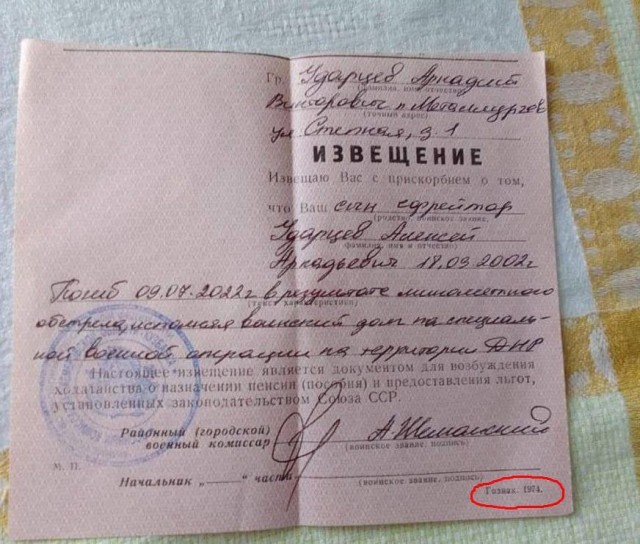 Гр. Ударцев Аркадий
(фамилия, имя отчество)
Викторович п Металлургов
(точный адрес)
ул Степная, д. 1
ИЗВЕЩЕНИЕ
Извещаю Вас с прискорбием о том,
что Ваш сын ефрейтор
(родство, воинское звание,
Ударцев Алексей
фамилия, имя и отчество)
Аркадьевич 18.03.2002г
Погиб 09.07.2022г в результате минометного
обстрела, исполняя воинский долг на специаль-
ной военной операции на территории ДНР
Настоящее извещение является документом для возбуждения
ходатайства о назначении пенсии (пособия) и предоставления льгот,
установленных законодательством Союза ССР.
Районный (городской)
военный комиссар
(воинское звание, подпись)
М. П.
Начальник „ “ части
(воинское звание, подпись)
Гознак. 1974.